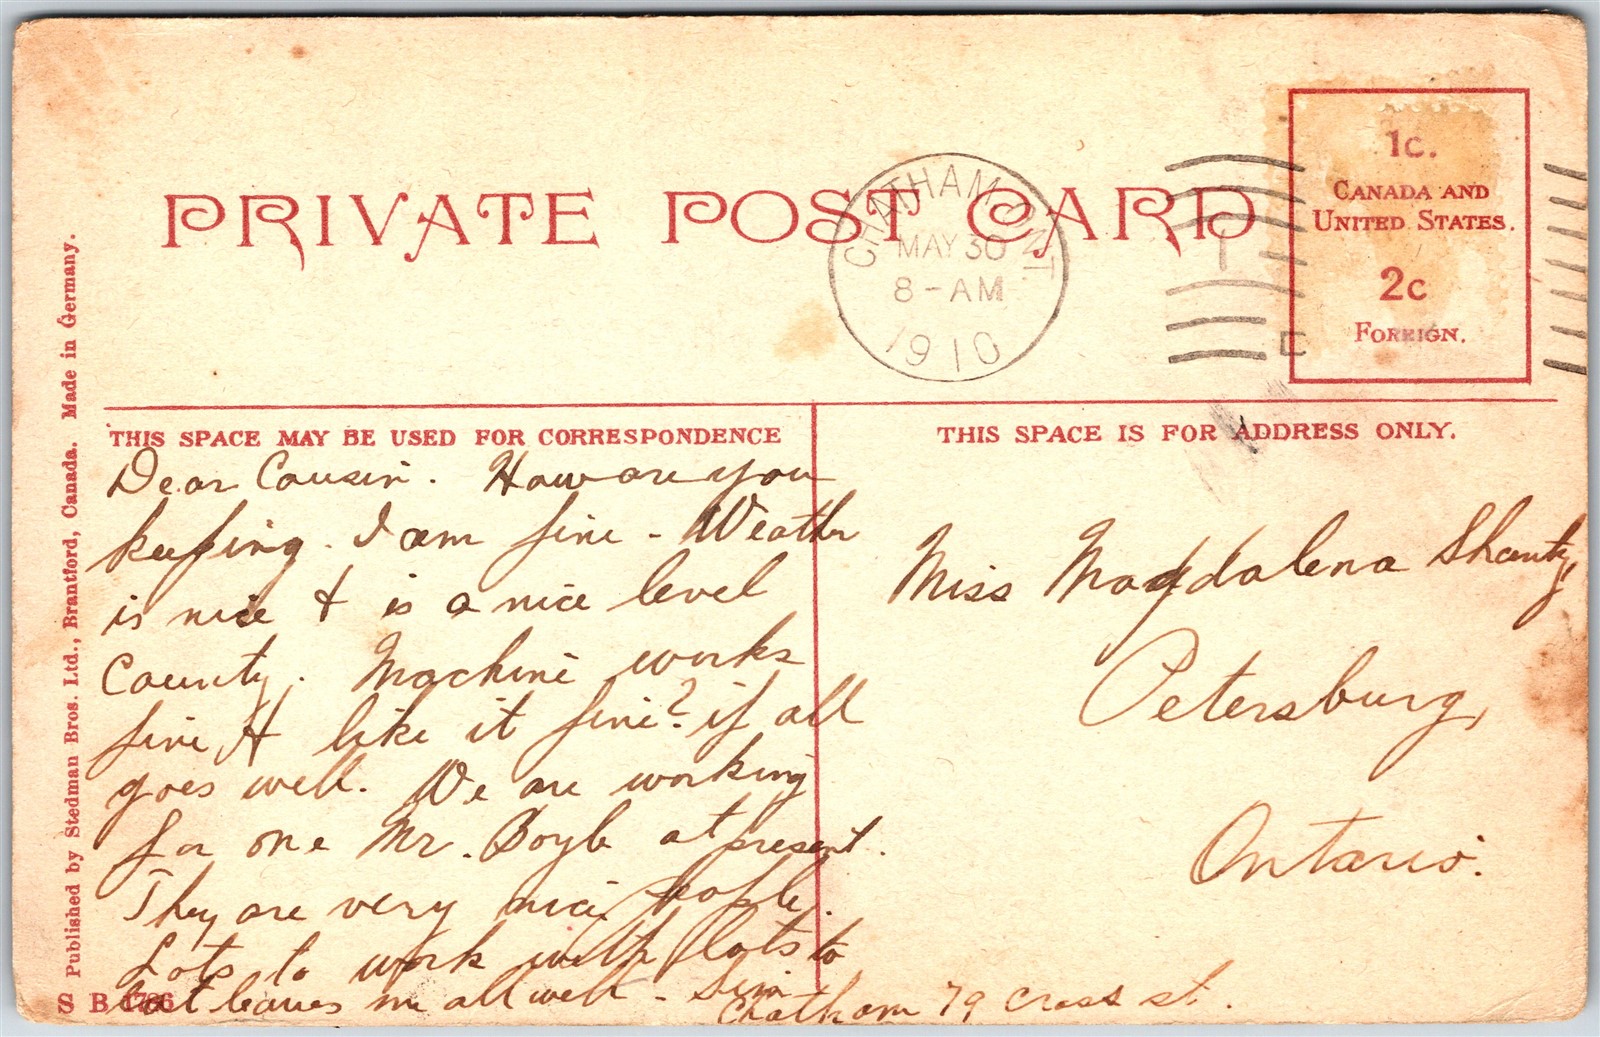 PRIVATE POST CARD
CHATHAM, ONT.
MAY 30
8-AM
1910
1c.
CANADA AND
UNITED STATES.
2c
FOREIGN.
Published by Stedman Bros. Ltd., Brantford, Canada. Made in Germany.
THIS SPACE MAY BE USED FOR CORRESPONDENCE
Dear Cousin. How are you
keeping. I am fine - Weather
is nice & is a nice level
County. Machine works
fine & like it fine? if all
goes well. We are working
for one Mr. Boyle at present.
They are very nice people.
Lots to work with lots to
eat leaves me all well - Sim
Chatham 79 Cross st.
S B 1786
THIS SPACE IS FOR ADDRESS ONLY.
Miss Magdalena Shantz,
Petersburg,
Ontario.